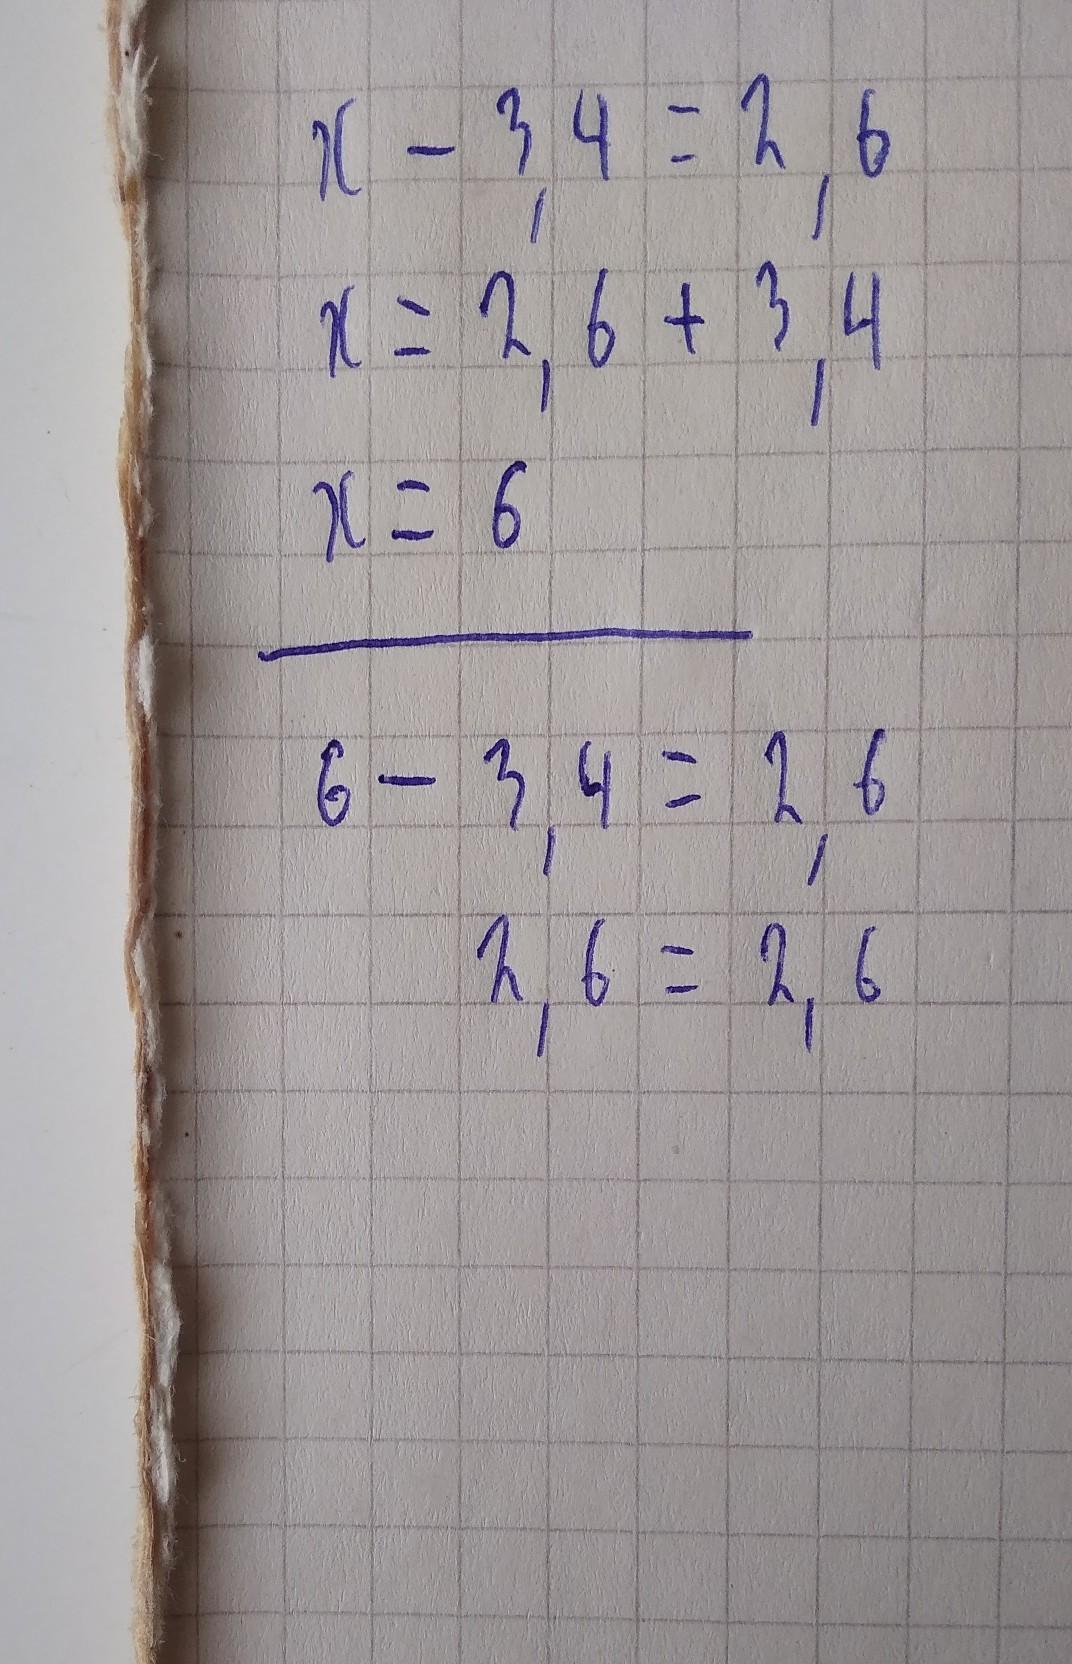 x - 3,4 = 2,6
x = 2,6 + 3,4
x = 6
6 - 3,4 = 2,6
2,6 = 2,6